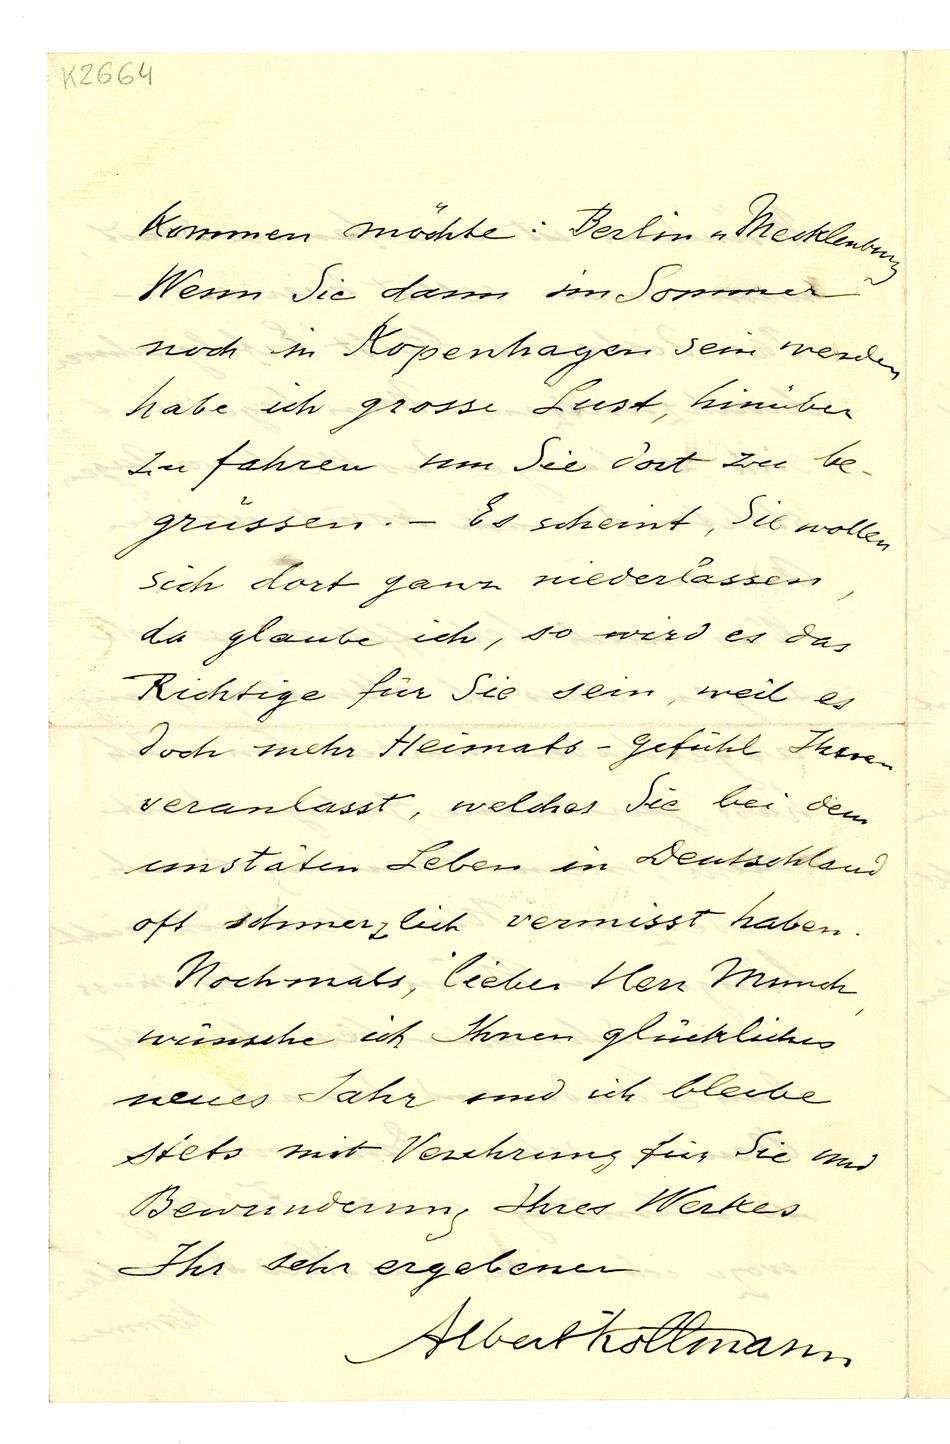 K2664
kommen möchte: Berlin u Mecklenburg
Wenn Sie dann im Sommer
noch in Kopenhagen sein werden
habe ich grosse Lust, hinüber
zu fahren um Sie dort zu be-
grüssen. – Es scheint, Sie wollen
sich dort ganz niederlassen,
da glaube ich, so wird es das
Richtige für Sie sein, weil es
doch mehr Heimats-gefühl Ihnen
veranlasst, welches Sie bei dem
unstäten Leben in Deutschland
oft schmerzlich vermisst haben.
Nochmals, lieber Herr Munch,
wünsche ich Ihnen glückliches
neues Jahr und ich bleibe
stets mit Verehrung für Sie und
Bewunderung Ihres Werkes
Ihr sehr ergebener
Albert Kollmann